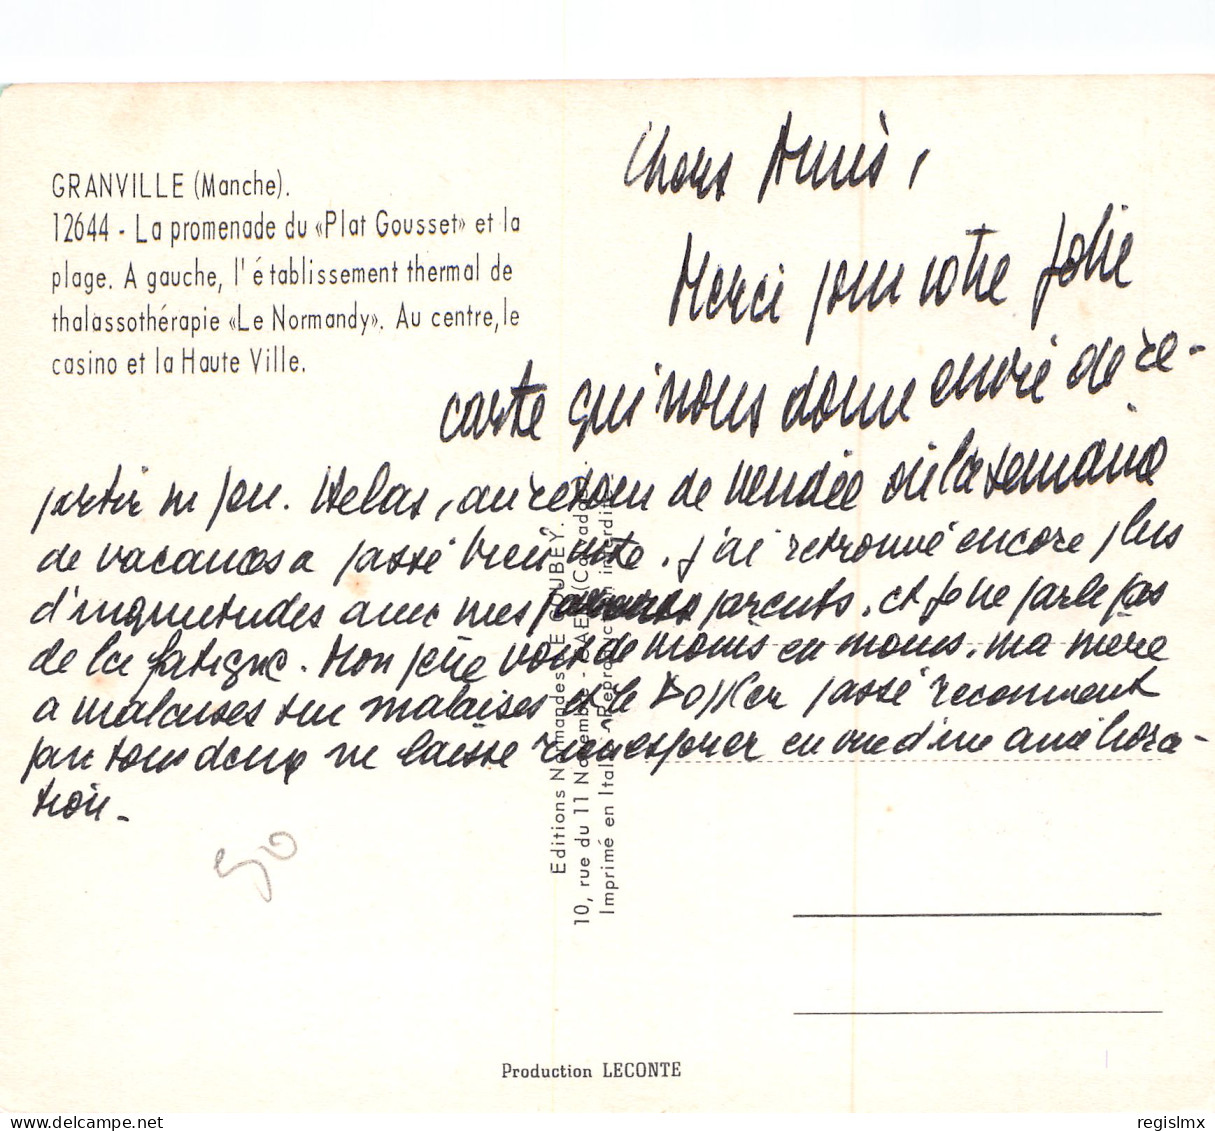 GRANVILLE (Manche).
12644 - La promenade du «Plat Gousset» et la
plage. A gauche, l'établissement thermal de
thalassothérapie «Le Normandy». Au centre, le
casino et la Haute Ville.
Chers Amis,
Merci pour votre jolie
carte qui nous donne envie de re-
partir un peu. Helas, au retour de Vendée où la semaine
de vacances a passé bien vite. j'ai retrouvé encore plus
d'inquietudes avec mes parents. et je ne parle pas
de la fatigue. Mon père voit de moins en moins. ma mère
a malaises sur malaises et le Doppler passé recemment
par tous deux ne laisse rien esperer en vue d'une amêliora-
tion.
50
Editions Normandes LE GOUBEY.
10, rue du 11 Novembre - CAEN (Calvados).
Imprimé en Italie - Reproduction interdite
Production LECONTE
regislmx